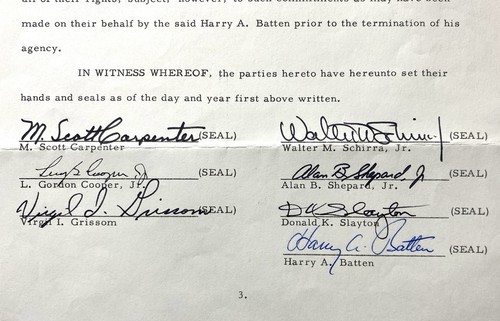 all of their rights, subject, however, to such commitments as may have been
made on their behalf by the said Harry A. Batten prior to the termination of his
agency.
IN WITNESS WHEREOF, the parties hereto have hereunto set their
hands and seals as of the day and year first above written.
M. Scott Carpenter (SEAL)
M. Scott Carpenter
(SEAL)
L. Gordon Cooper, Jr.
Virgil I. Grissom (SEAL)
Virgil I. Grissom
Walter M Schirra Jr (SEAL)
Walter M. Schirra, Jr.
Alan B Shepard Jr (SEAL)
Alan B. Shepard, Jr.
D K Slayton (SEAL)
Donald K. Slayton
Harry A. Batten (SEAL)
Harry A. Batten
3.